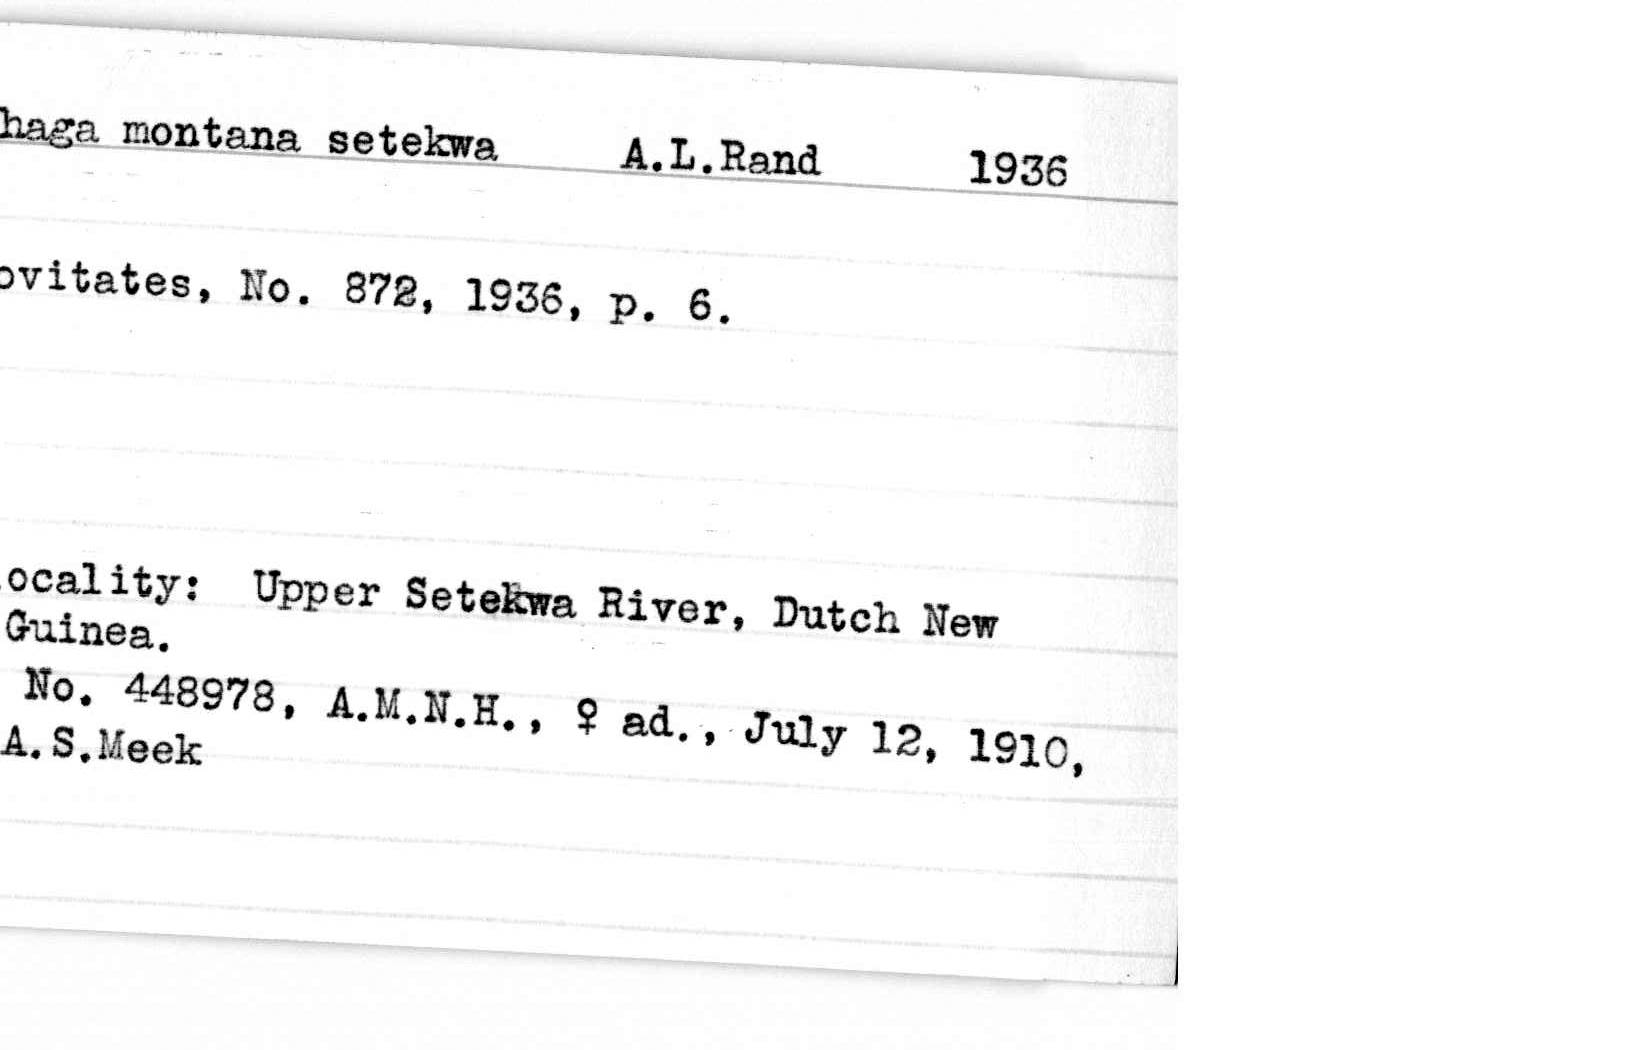 haga montana setekwa A.L.Rand 1936
ovitates, No. 872, 1936, p. 6.
ocality: Upper Setekwa River, Dutch New
Guinea.
No. 448978, A.M.N.H., ♀ ad., July 12, 1910,
A.S.Meek